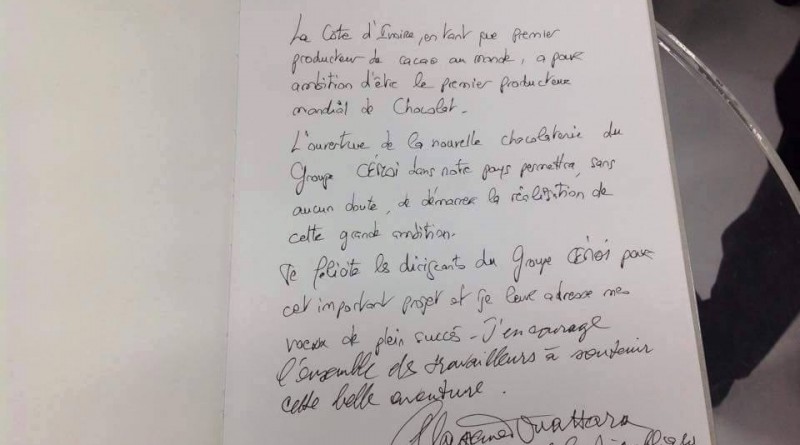 La Côte d'Ivoire, en tant que premier
producteur de cacao au monde, a pour
ambition d'être le premier producteur
mondial de Chocolat.
L'ouverture de la nouvelle chocolaterie du
Groupe CÉMOI dans notre pays permettra, sans
aucun doute, de démarrer la réalisation de
cette grande ambition.
Je félicite les dirigeants du Groupe CÉMOI pour
cet important projet et je leur adresse mes
voeux de plein succès - J'encourage
l'ensemble des travailleurs à soutenir
cette belle aventure.
Ouattara